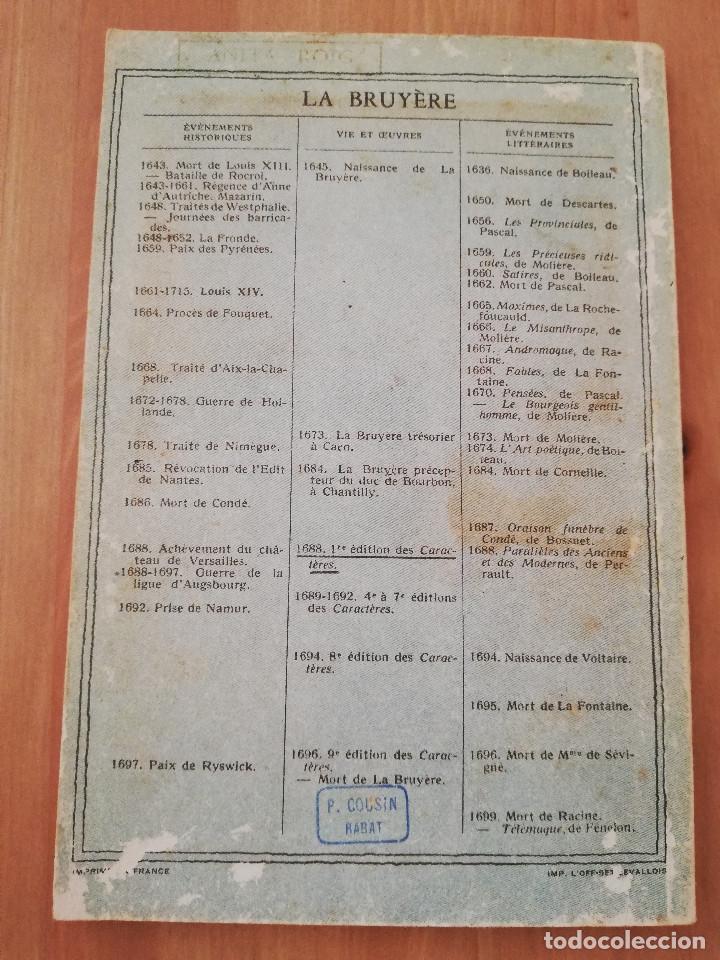 ANITA ROIG
LA BRUYÈRE
ÉVÉNEMENTS
HISTORIQUES
1643. Mort de Louis XIII.
— Bataille de Rocroi.
1643-1661. Régence d'Anne
d'Autriche. Mazarin.
1648. Traités de Westphalie.
— Journées des barrica-
des.
1648-1652. La Fronde.
1659. Paix des Pyrénées.
1661-1715. Louis XIV.
1664. Procès de Fouquet.
1668. Traité d'Aix-la-Cha-
pelle.
1672-1678. Guerre de Hol-
lande.
1678. Traité de Nimègue.
1685. Révocation de l'Edit
de Nantes.
1686. Mort de Condé.
1688. Achèvement du châ-
teau de Versailles.
1688-1697. Guerre de la
ligue d'Augsbourg.
1692. Prise de Namur.
1697. Paix de Ryswick.
VIE ET ŒUVRES
1645. Naissance de La
Bruyère.
1673. La Bruyère trésorier
à Caen.
1684. La Bruyère précep-
teur du duc de Bourbon,
à Chantilly.
1688. 1re édition des Carac-
tères.
1689-1692. 4e à 7e éditions
des Caractères.
1694. 8e édition des Carac-
tères.
1696. 9e édition des Carac-
tères.
— Mort de La Bruyère.
P. COUSIN
RABAT
ÉVÉNEMENTS
LITTÉRAIRES
1636. Naissance de Boileau.
1650. Mort de Descartes.
1656. Les Provinciales, de
Pascal.
1659. Les Précieuses ridi-
cules, de Molière.
1660. Satires, de Boileau.
1662. Mort de Pascal.
1665. Maximes, de La Roche-
foucauld.
1666. Le Misanthrope, de
Molière.
1667. Andromaque, de Ra-
cine.
1668. Fables, de La Fon-
taine.
1670. Pensées, de Pascal.
— Le Bourgeois gentil-
homme, de Molière.
1673. Mort de Molière.
1674. L'Art poétique, de Boi-
leau.
1684. Mort de Corneille.
1687. Oraison funèbre de
Condé, de Bossuet.
1688. Parallèles des Anciens
et des Modernes, de Per-
rault.
1694. Naissance de Voltaire.
1695. Mort de La Fontaine.
1696. Mort de Mme de Sévi-
gné.
1699. Mort de Racine.
— Télémaque, de Fénelon.
FRANCE
IMP. L'OFF-SET LEVALLOIS
todocoleccion